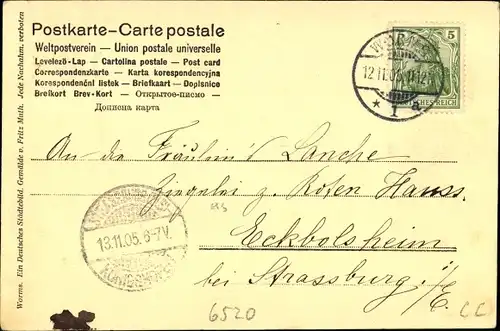 Postkarte – Carte postale
Weltpostverein — Union postale universelle
Levelező-Lap — Cartolina postale — Post card
Correspondenzkarte — Karta korespondencyjna
Korespondenční listek — Briefkaart — Dopisnice
Brefkort Brev-Kort — Открытое-письмо —
Дописна карта
5
DEUTSCHES REICH
WORMS
12.11.05.
* 1 a.
An die Fräulein's Lanche
Ziegelei z. Roten Hauss
Eckbolsheim
bei Strassburg i/E.
13.11.05. 6-7V.
6520
CC
Worms. Ein Deutsches Städtebild. Gemälde v. Fritz Muth. Jede Nachahm. verboten